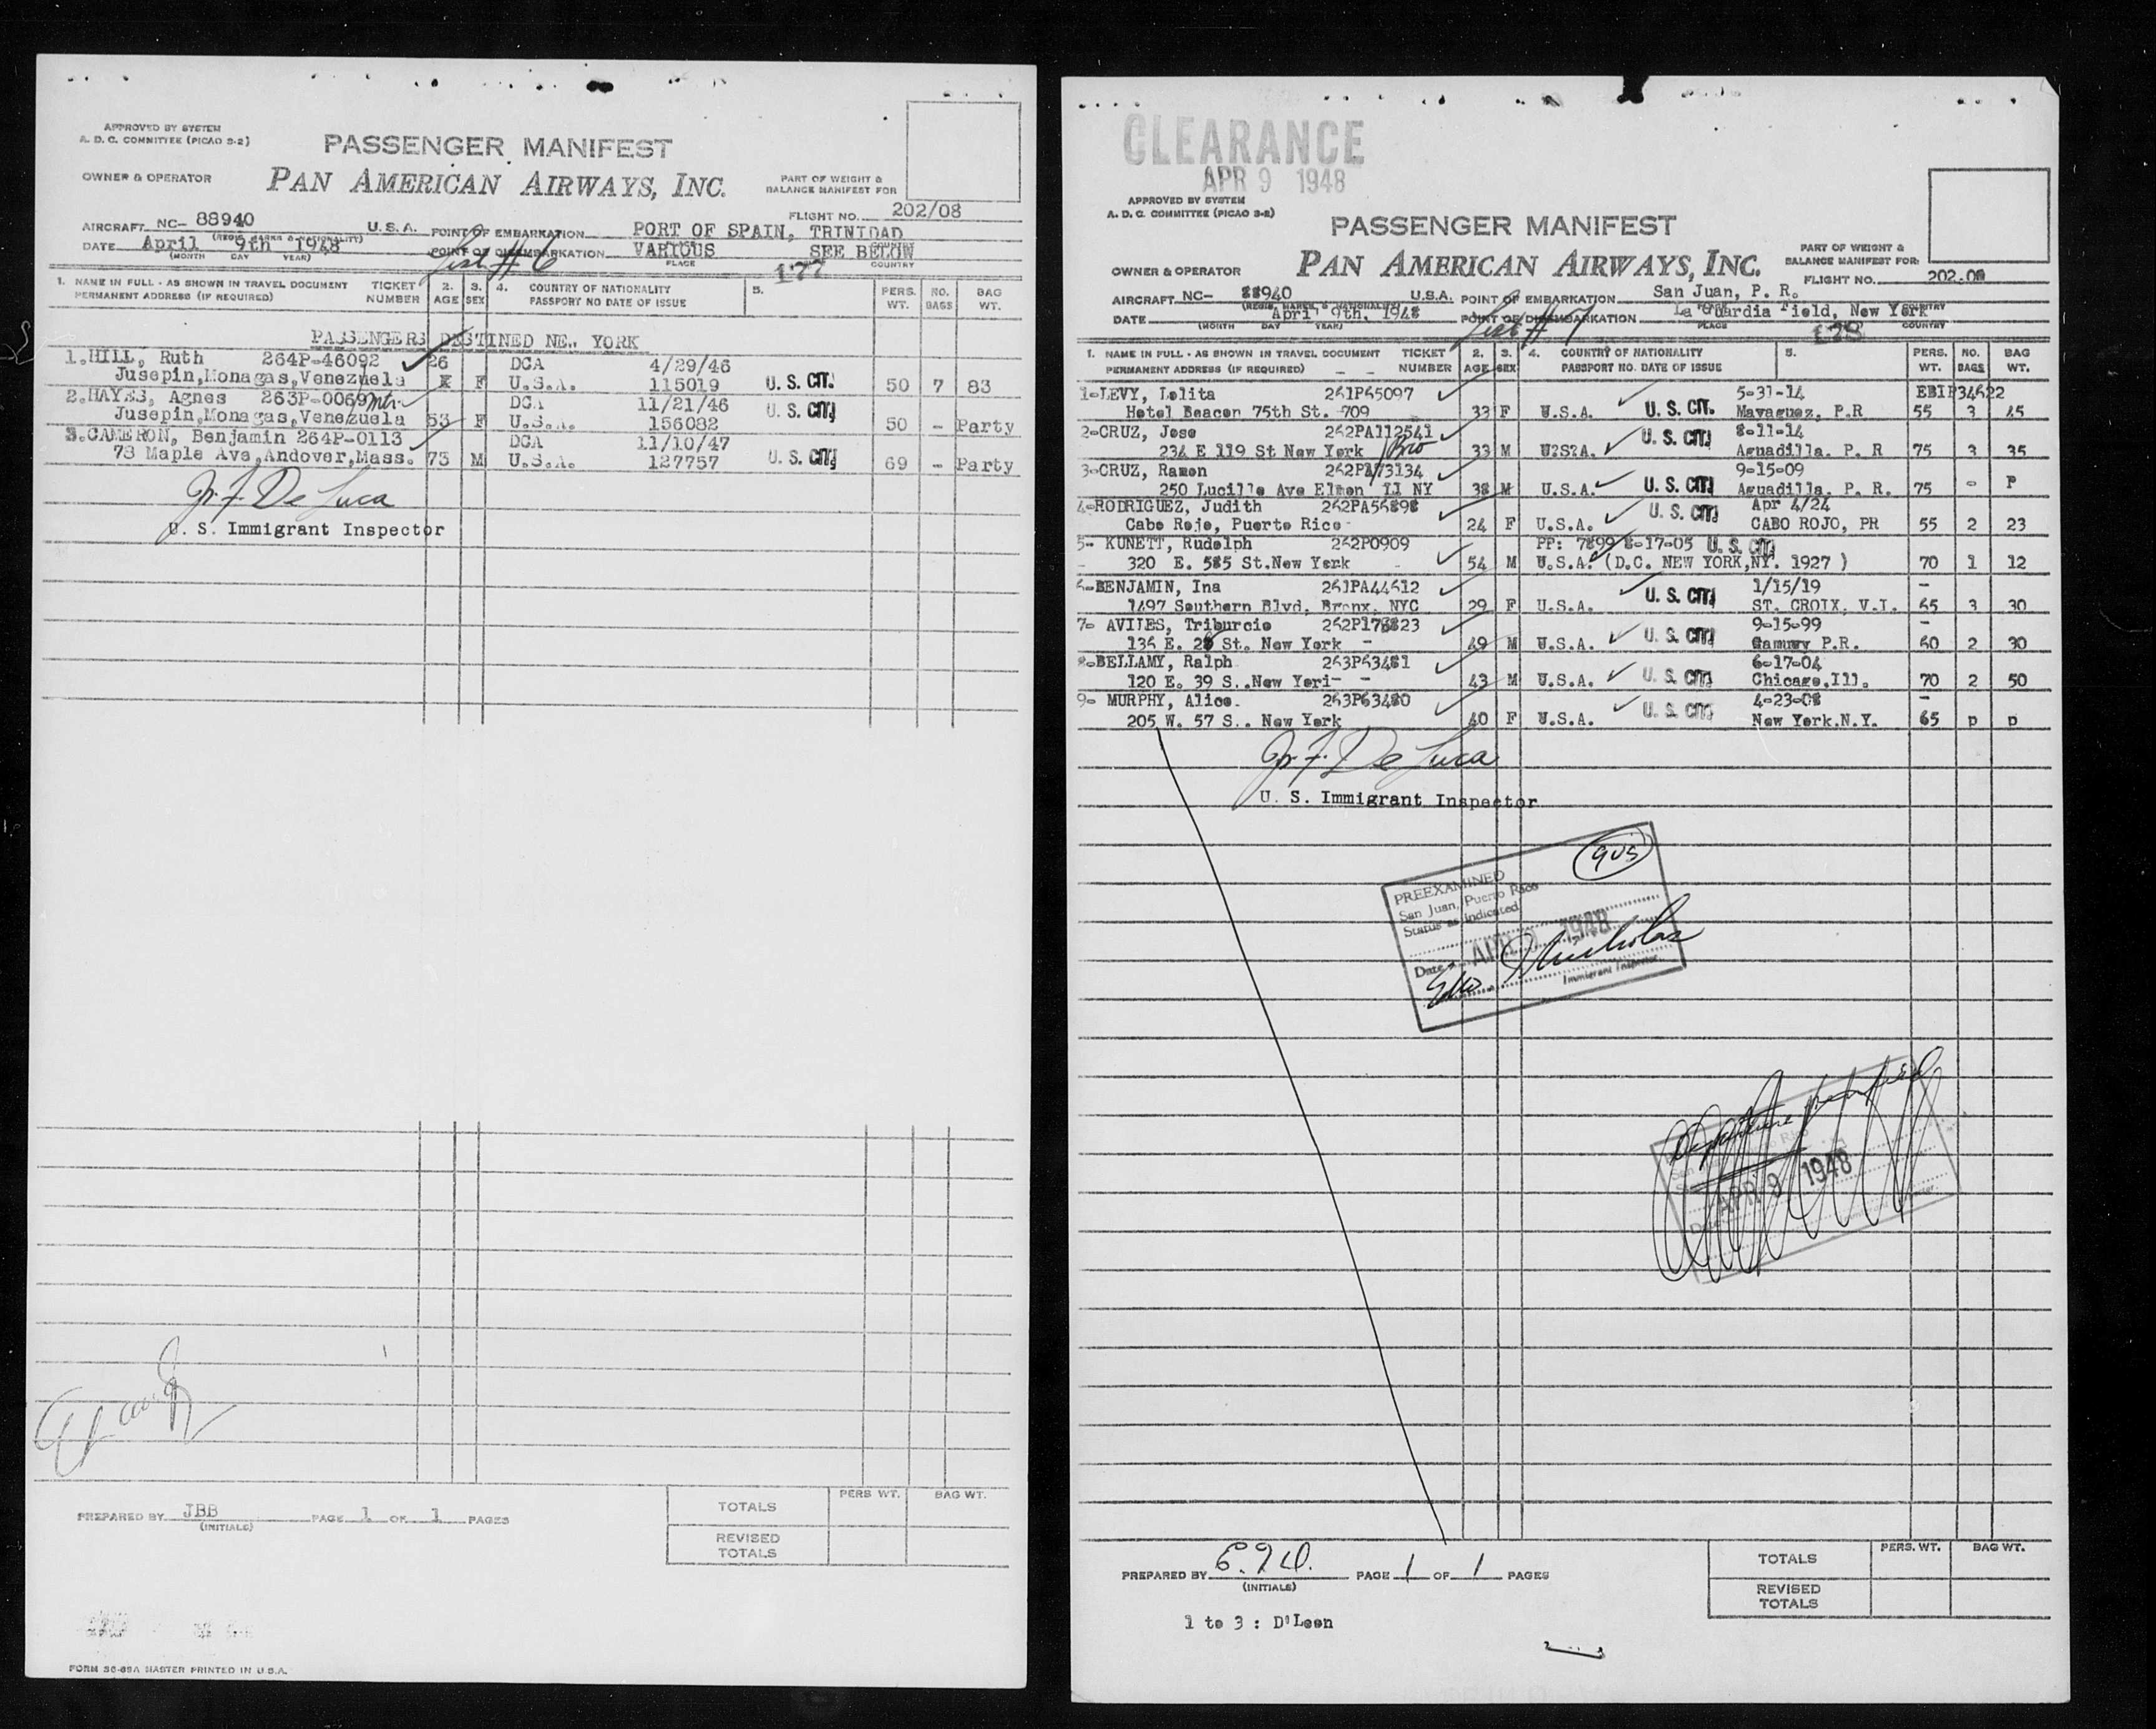 APPROVED BY SYSTEM
A. D. C. COMMITTEE (PICAO S-2)
PASSENGER MANIFEST
OWNER & OPERATOR
PAN AMERICAN AIRWAYS, INC.
PART OF WEIGHT &
BALANCE MANIFEST FOR
FLIGHT NO. 202/08
AIRCRAFT NC- 88940 U.S.A. POINT OF EMBARKATION PORT OF SPAIN, TRINIDAD
(REGIS. MARKS & NATIONALITY)
DATE April 9th 1948 POINT OF DISEMBARKATION VARIOUS SEE BELOW
(MONTH DAY YEAR) PLACE COUNTRY
List # 6
177
1. NAME IN FULL - AS SHOWN IN TRAVEL DOCUMENT TICKET 2. 3. 4. COUNTRY OF NATIONALITY 5. PERS. NO. BAG
PERMANENT ADDRESS (IF REQUIRED) NUMBER AGE SEX PASSPORT NO DATE OF ISSUE WT. BAGS WT.
PASSENGERS DESTINED NEW YORK
1.HILL, Ruth 264P-46092 26 DCA 4/29/46
Jusepin,Monagas,Venezuela X F U.S.A. 115019 U. S. CIT. 50 7 83
2.HAYES, Agnes 263P-0069 DCA 11/21/46
Jusepin,Monagas,Venezuela 53 F U.S.A. 156082 U. S. CIT. 50 - Party
3.CAMERON, Benjamin 264P-0113 DCA 11/10/47
73 Maple Ave,Andover,Mass. 73 M U.S.A. 127757 U. S. CIT. 69 - Party
Jr. F. De Luca
U. S. Immigrant Inspector
PREPARED BY JBB PAGE 1 OF 1 PAGES
(INITIALS)
TOTALS PERS WT. BAG WT.
REVISED
TOTALS
FORM SC-69A MASTER PRINTED IN U.S.A.
CLEARANCE
APR 9 1948
APPROVED BY SYSTEM
A. D. C. COMMITTEE (PICAO S-2)
PASSENGER MANIFEST
OWNER & OPERATOR
PAN AMERICAN AIRWAYS, INC.
PART OF WEIGHT &
BALANCE MANIFEST FOR:
FLIGHT NO. 202.08
AIRCRAFT NC- 88940 U.S.A. POINT OF EMBARKATION San Juan, P. R.
(REGIS. MARKS & NATIONALITY) PLACE COUNTRY
DATE April 9th, 1948 POINT OF DISEMBARKATION La Guardia Field, New York
(MONTH DAY YEAR) PLACE COUNTRY
List # 7
178
1. NAME IN FULL - AS SHOWN IN TRAVEL DOCUMENT TICKET 2. 3. 4. COUNTRY OF NATIONALITY 5. PERS. NO. BAG
PERMANENT ADDRESS (IF REQUIRED) NUMBER AGE SEX PASSPORT NO. DATE OF ISSUE WT. BAGS WT.
1-LEVY, Lolita 261P65097 5-31-14 EBIP34622
Hotel Beacon 75th St. 709 33 F U.S.A. U. S. CIT. Mayaguez, P.R 55 3 45
2-CRUZ, Jose 262PA112541 8-11-14
234 E 119 St New York Bro 33 M U?S?A. U. S. CIT. Aguadilla. P. R 75 3 35
3-CRUZ, Ramon 9-15-09
250 Lucille Ave Elmon LI NY 38 M U.S.A. U. S. CIT. Aguadilla. P. R. 75 - P
4-RODRIGUEZ, Judith 262PA56898 Apr 4/24
Cabo Rojo, Puerto Rico 24 F U.S.A. U. S. CIT. CABO ROJO, PR 55 2 23
5- KUNETT, Rudolph 262P0909 PP: 7899 8-17-05 U. S. CIT.
320 E. 585 St.New York 54 M U.S.A. (D.C. NEW YORK,NY. 1927 ) 70 1 12
6-BENJAMIN, Ina 261PA44612 1/15/19
1497 Southern Blvd, Bronx, NYC 29 F U.S.A. U. S. CIT. ST. CROIX, V.I. 65 3 30
7- AVILES, Triburcio 9-15-99
136 E. St. New York 49 M U.S.A. U. S. CIT. P.R. 60 2 30
8-BELLAMY, Ralph 263P63481 6-17-04
120 E. 39 S..New Yori- 43 M U.S.A. U. S. CIT. Chicago,Ill. 70 2 50
9- MURPHY, Alice. 263P63480 4-23-08
205 W. 57 S.. New York 40 F U.S.A. U. S. CIT. New York.N.Y. 65 p p
Jr. F. De Luca
U. S. Immigrant Inspector
PREEXAMINED
San Juan, Puerto Rico
Status as indicated
Date APR 9 1948
Immigrant Inspector
9US
Departure
APR 9 1948
PREPARED BY PAGE 1 OF 1 PAGES
(INITIALS)
TOTALS PERS. WT. BAG WT.
REVISED
TOTALS
1 to 3 : D'Leon